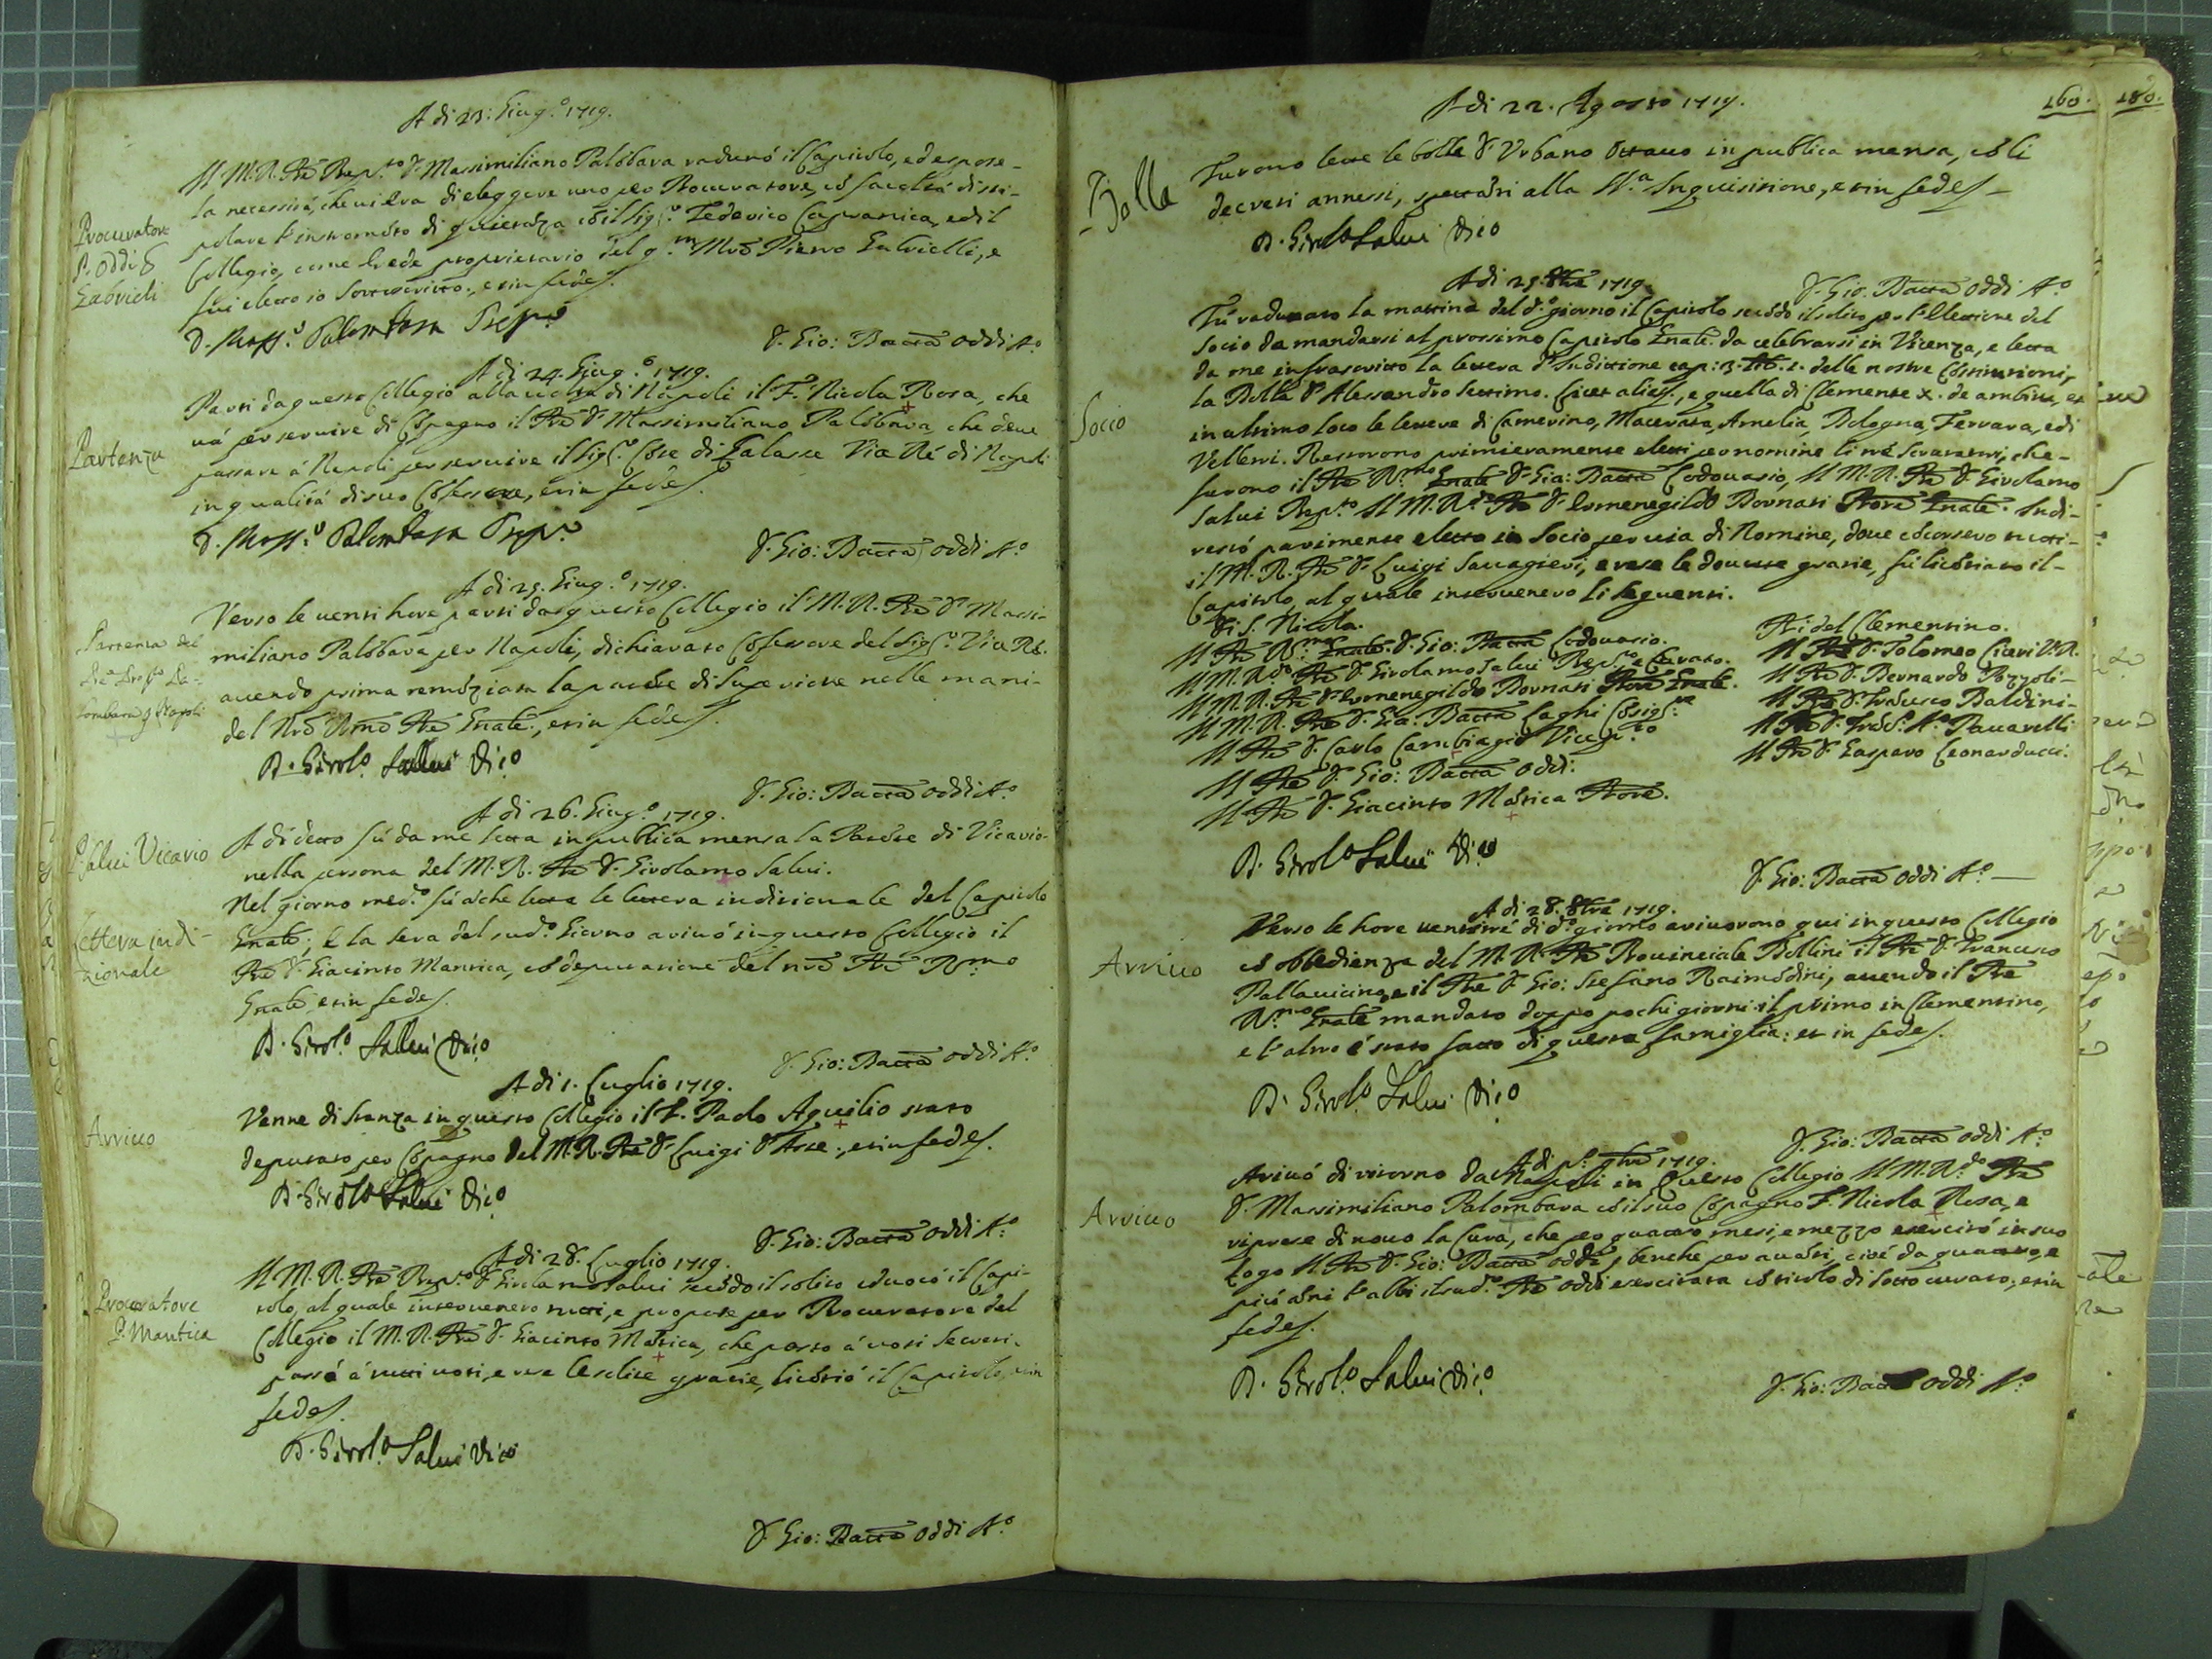 A di 23: Giug.o 1719.
Il M.R. Pre Prep.to D. Massimiliano Palõbara radunò il Capitolo, ed espose
la necessità, che vi era di eleggere uno per Procuratore, cõ facoltà di sti-
Procuratore
P. Oddi
Gabrieli
polare l'instromẽto di quietãza cõ il Sig.r Federico Capranica, ed il
Collegio, come herede proprietario del q.m Pietro Gabrielli, e
fui eletto io sottoscritto, et in fede
D. Mass.o Palombara Prep.to
D. Gio: Batta Oddi A.o
A di 24. Giug.o 1719.
Partì da questo Collegio alla volta di Napoli il F. Nicola Rosa, che
Partenza
và per servire di Cõpagno il Pre D. Massimiliano Palõbara, che deve
passare à Napoli per servire il Sig.r Cõte di Galasse Vice Rè di Napoli
in qualità di suo Cõfessore, et in fede
D. Mass.o Palombara Prep.to
D. Gio: Batta Oddi A.o
A di 25. Giug.o 1719.
Verso le venti hore partì da questo Collegio il M.R. Pre D. Massi-
Partenza del
Pre Prep.to Pa-
lombara p Napoli
miliano Palõbara per Napoli, dichiarato Cõfessore del Sig.r Vice Rè.
avendo prima renũziata la patẽte di Superiore nelle mani
del Nrõ Rmõ Pre Gnale, et in fede
D. Girol.o Salvi Vic.o
D. Gio: Batta Oddi A.o
A di 26. Giug.o 1719.
P. Salvi Vicario
A di detto fù da me letta in publica mensa la Patẽte di Vicario
nella persona del M.R. Pre D. Girolamo Salvi.
Nel giorno med.o fù ãche letta la lettera indizionale del Capitolo
Lettera indi-
zionale
Gnale; E la sera del sud.o Giorno arivò in questo Collegio il
Pre D. Giacinto Mantica, cõ deputazione del nrõ Pre R.mo
Gnale, et in fede
D. Girol.o Salvi Vic.o
D. Gio: Batta Oddi A.o
A di 1. Luglio 1719.
Arrivo
Venne di stanza in questo Collegio il F. Paolo Aquilio stato
deputato per Cõpagno del M.R. Pre D. Luigi d'Asse, et in fede
D. Girol.o Salvi Vic.o
D. Gio: Batta Oddi A.o
A di 28. Luglio 1719.
Il M.R. Pre Prep.to D. Girolamo Salvi secõdo il solito cõvocò il Capi-
Procuratore
P. Mantica
tolo, al quale intervenero tutti, e propose per Procuratore del
Collegio il M.R. Pre D. Giacinto Mãtica, che posto à voti secreti
passò à tutti voti, e rese le solite grazie, licẽtiò il Capitolo, et in
fede
D. Girol.o Salvi Vic.o
D. Gio: Batta Oddi A.o
160. 180.
A di 22. Agosto 1719.
Bolle
Furono lette le bolle d'Urbano Ottavo in publica mensa, cõ li
decreti annessi, spettãti alla S.a Inquisitione, et in fede
D. Girol.o Salvi Vic.o
D. Gio: Batta Oddi A.o
A di 25. 8bre 1719.
Fù radunato la mattina del d.o giorno il Capitolo secõdo il solito per l'Elettione del
Socio da mandarsi al prossimo Capitolo Gnale da celebrarsi in Vicenza, e letta
da me infrascritto la lettera d'Inditione cap: 3. lib. 1. delle nostre Cõstitutioni,
la Bolla d'Alessandro Settimo. Licet alias, e quella di Clemente X. de ambitu, et
Socio
in ultimo loco le lettere di Camerino, Macerata, Amelia, Bologna, Ferrara, e di
Velletri. Restorono primieramente eletti per nomine li trè Scrutatori, che
furono il Pre R.mo Gnale D. Gio: Batta Lodovasio, Il M.R. Pre D. Girolamo
Salvi Prep.to Il M.R. Pre D. Ermenegildo Bornati Prore Gnale. Indi
restò parimente eletto in Socio per via di Nomine, dove cõcorsero tutti
il M.R. Pre D. Luigi Savagieri, e rese le dovute grazie, fù licẽtiato il
Capitolo, al quale intervenero li seguenti.
Di S. Nicola.
Il Pre R.mo Gnale D. Gio: Batta Lodovasio.
Il M.R.do Pre D. Girolamo Salvi Prep.to e Curato.
Il M.R. Pre D. Ermenegildo Bornati Prore Gnale.
Il M.R. Pre D. Gio: Batta Laghi Cõsig.re
Il Pre D. Carlo Cambiagio Vicep.to
Il Pre D. Gio: Batta Oddi.
Il Pre D. Giacinto Mãtica Prore.
Pri del Clementino.
Il Pre D. Tolomeo Ciceri V.R.
Il Pre D. Bernardo Pozzoli
Il Pre D. Frãcesco Baldini
Il Pre D. Frãc. A.o Baccarelli
Il Pre D. Gasparo Leonarducci.
D. Girol.o Salvi Vic.o
D. Gio: Batta Oddi A.o
A di 28. 8bre 1719.
Verso le hore ventitrè di d.o giorno arivorono qui in questo Collegio
Arrivo
cõ obbedienza del M.R. Pre Provinciale Bellini il Pre D. Francesco
Pallavicino, e il Pre D. Gio: Stefano Raimõdini, avendo il Pre
R.mo Gnale mandato doppo pochi giorni il primo in Clementino,
e l'altro è stato fatto di questa famiglia: et in fede
D. Girol.o Salvi Vic.o
D. Gio: Batta Oddi A.o
A di p.o 9bre 1719.
Arivò di ritorno da Napoli in questo Collegio Il M.R.do Pre
Arrivo
D. Massimiliano Palombara cõ il suo Cõpagno F. Nicola Rosa, e
riprese di novo la Cura, che per quattro mesi, e mezzo esercitò in suo
logo Il Pre D. Gio: Batta Oddi, benche per avãti, cioè da quattro, e
più ãni l'abbi il sud.o Pre Oddi esercitata cõ titolo di sotto curato; et in
fede
D. Girol.o Salvi Vic.o
D. Gio: Batta Oddi A.o